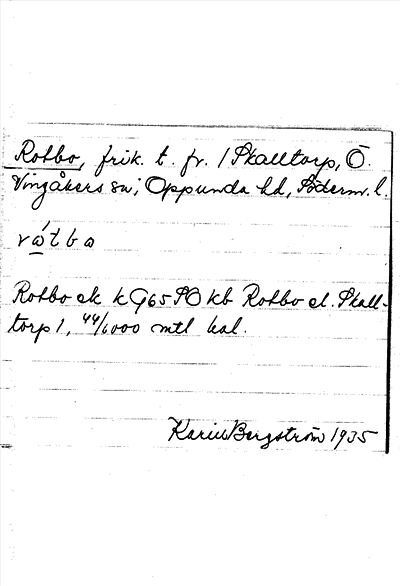 Rotbo, frik. t. fr. 1 Skalltorp, Ö.
Vingåkers sn; Oppunda hd, Söderm. l.
rátba
Rotbo ek k G 65 SO kb Rotbo el. Skall-
torp 1, 44/6000 mtl kal.
Karin Bergström 1935